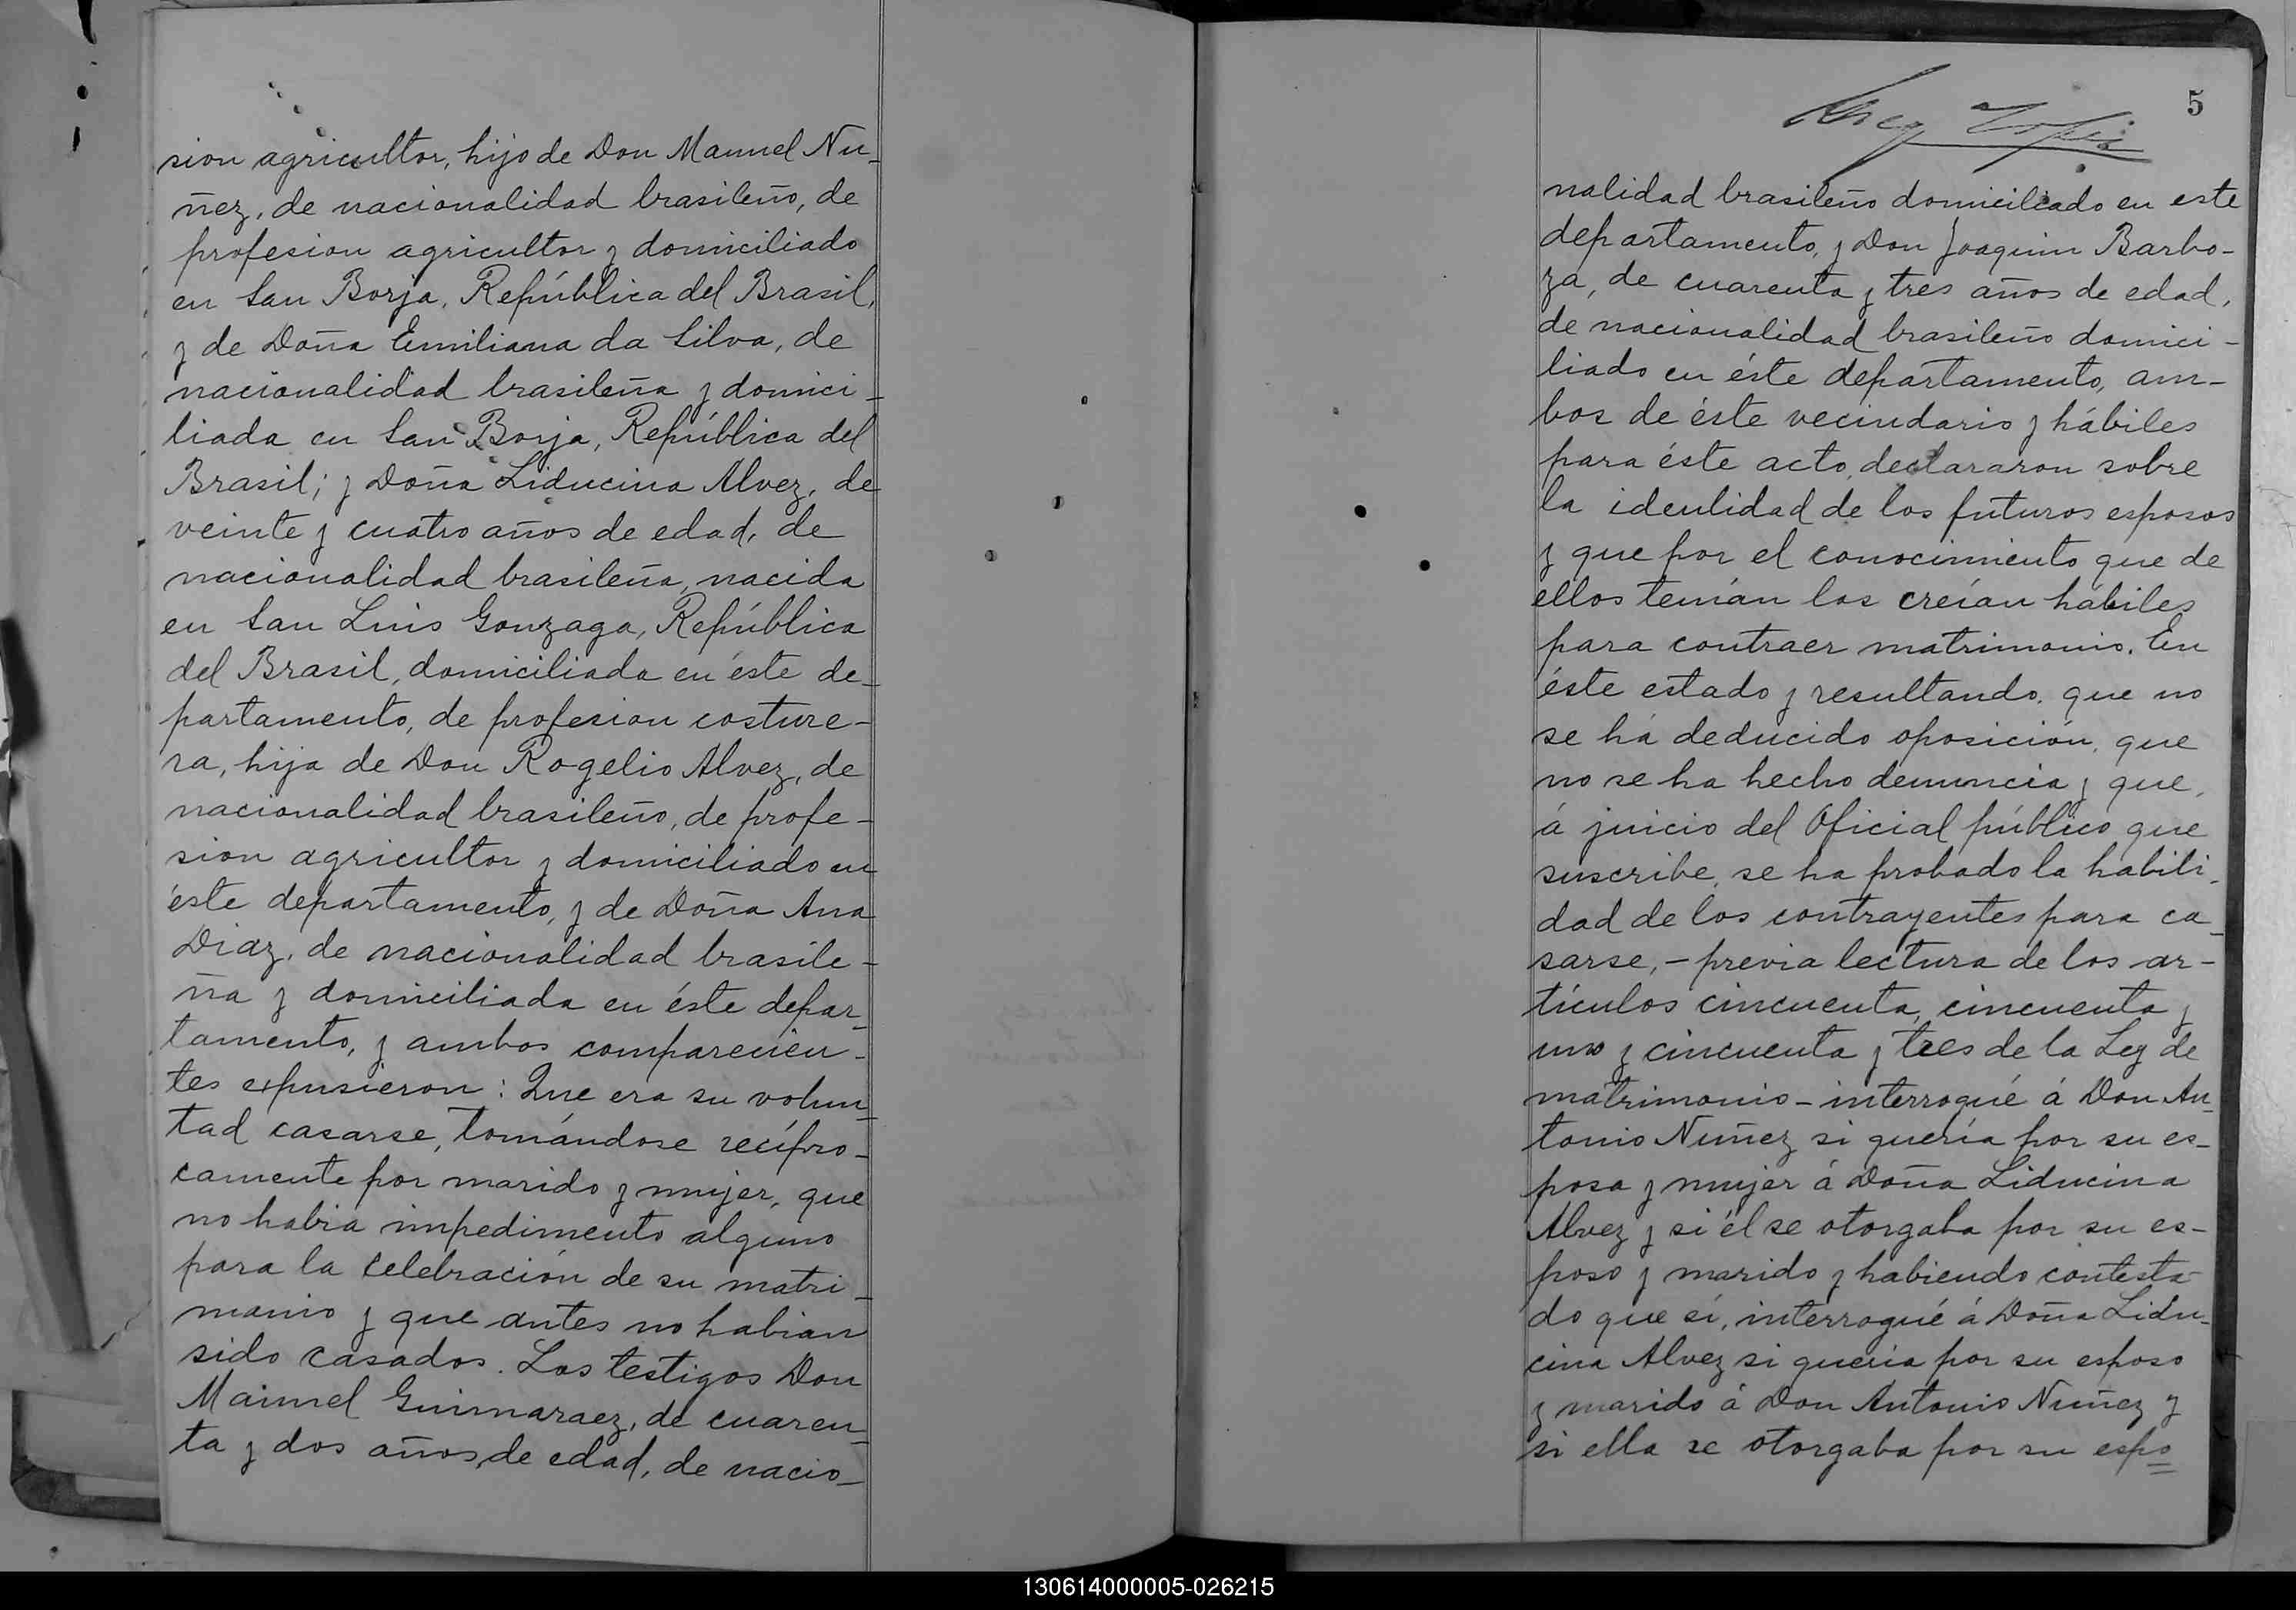 sion agricultor, hijo de Don Manuel Nu-
ñez, de nacionalidad brasileño, de
profesion agricultor y domiciliado
en San Borja, República del Brasil,
y de Doña Emiliana da Silva, de
nacionalidad brasileña y domici-
liada en San Borja, República del
Brasil; y Doña Liducina Alvez, de
veinte y cuatro años de edad, de
nacionalidad brasileña, nacida
en San Luis Gonzaga, República
del Brasil, domiciliada en éste de-
partamento, de profesion costure-
ra, hija de Don Rogelio Alvez, de
nacionalidad brasileño, de profe-
sion agricultor y domiciliado en
éste departamento, y de Doña Ana
Diaz, de nacionalidad brasile-
ña y domiciliada en éste depar-
tamento, y ambos comparecien-
tes expusieron: Que era su volun-
tad casarse, tomándose recípro-
camente por marido y mujer, que
no habia impedimento alguno
para la celebración de su matri-
monio y que antes no habian
sido casados. Los testigos Don
Manuel Guimaraez, de cuaren-
ta y dos años de edad, de nacio-
5
nalidad brasileño domiciliado en este
departamento, y Don Joaquin Barbo-
za, de cuarenta y tres años de edad,
de nacionalidad brasileño domici-
liado en éste departamento, am-
bos de éste vecindario y hábiles
para éste acto, declararon sobre
la identidad de los futuros esposos
y que por el conocimiento que de
ellos tenían los creían hábiles
para contraer matrimonio. En
éste estado y resultando, que no
se há deducido oposición, que
no se ha hecho denuncia y que,
á juicio del Oficial público que
suscribe, se ha probado la habili-
dad de los contrayentes para ca-
sarse, - previa lectura de los ar-
tículos cincuenta, cincuenta y
uno y cincuenta y tres de la Ley de
matrimonio - interrogué á Don An-
tonio Nuñez si quería por su es-
posa y mujer á Doña Liducina
Alvez y si él se otorgaba por su es-
poso y marido y habiendo contesta-
do que sí, interrogué á Doña Lidu-
cina Alvez si quería por su esposo
y marido á Don Antonio Nuñez y
si ella se otorgaba por su espo
130614000005-026215